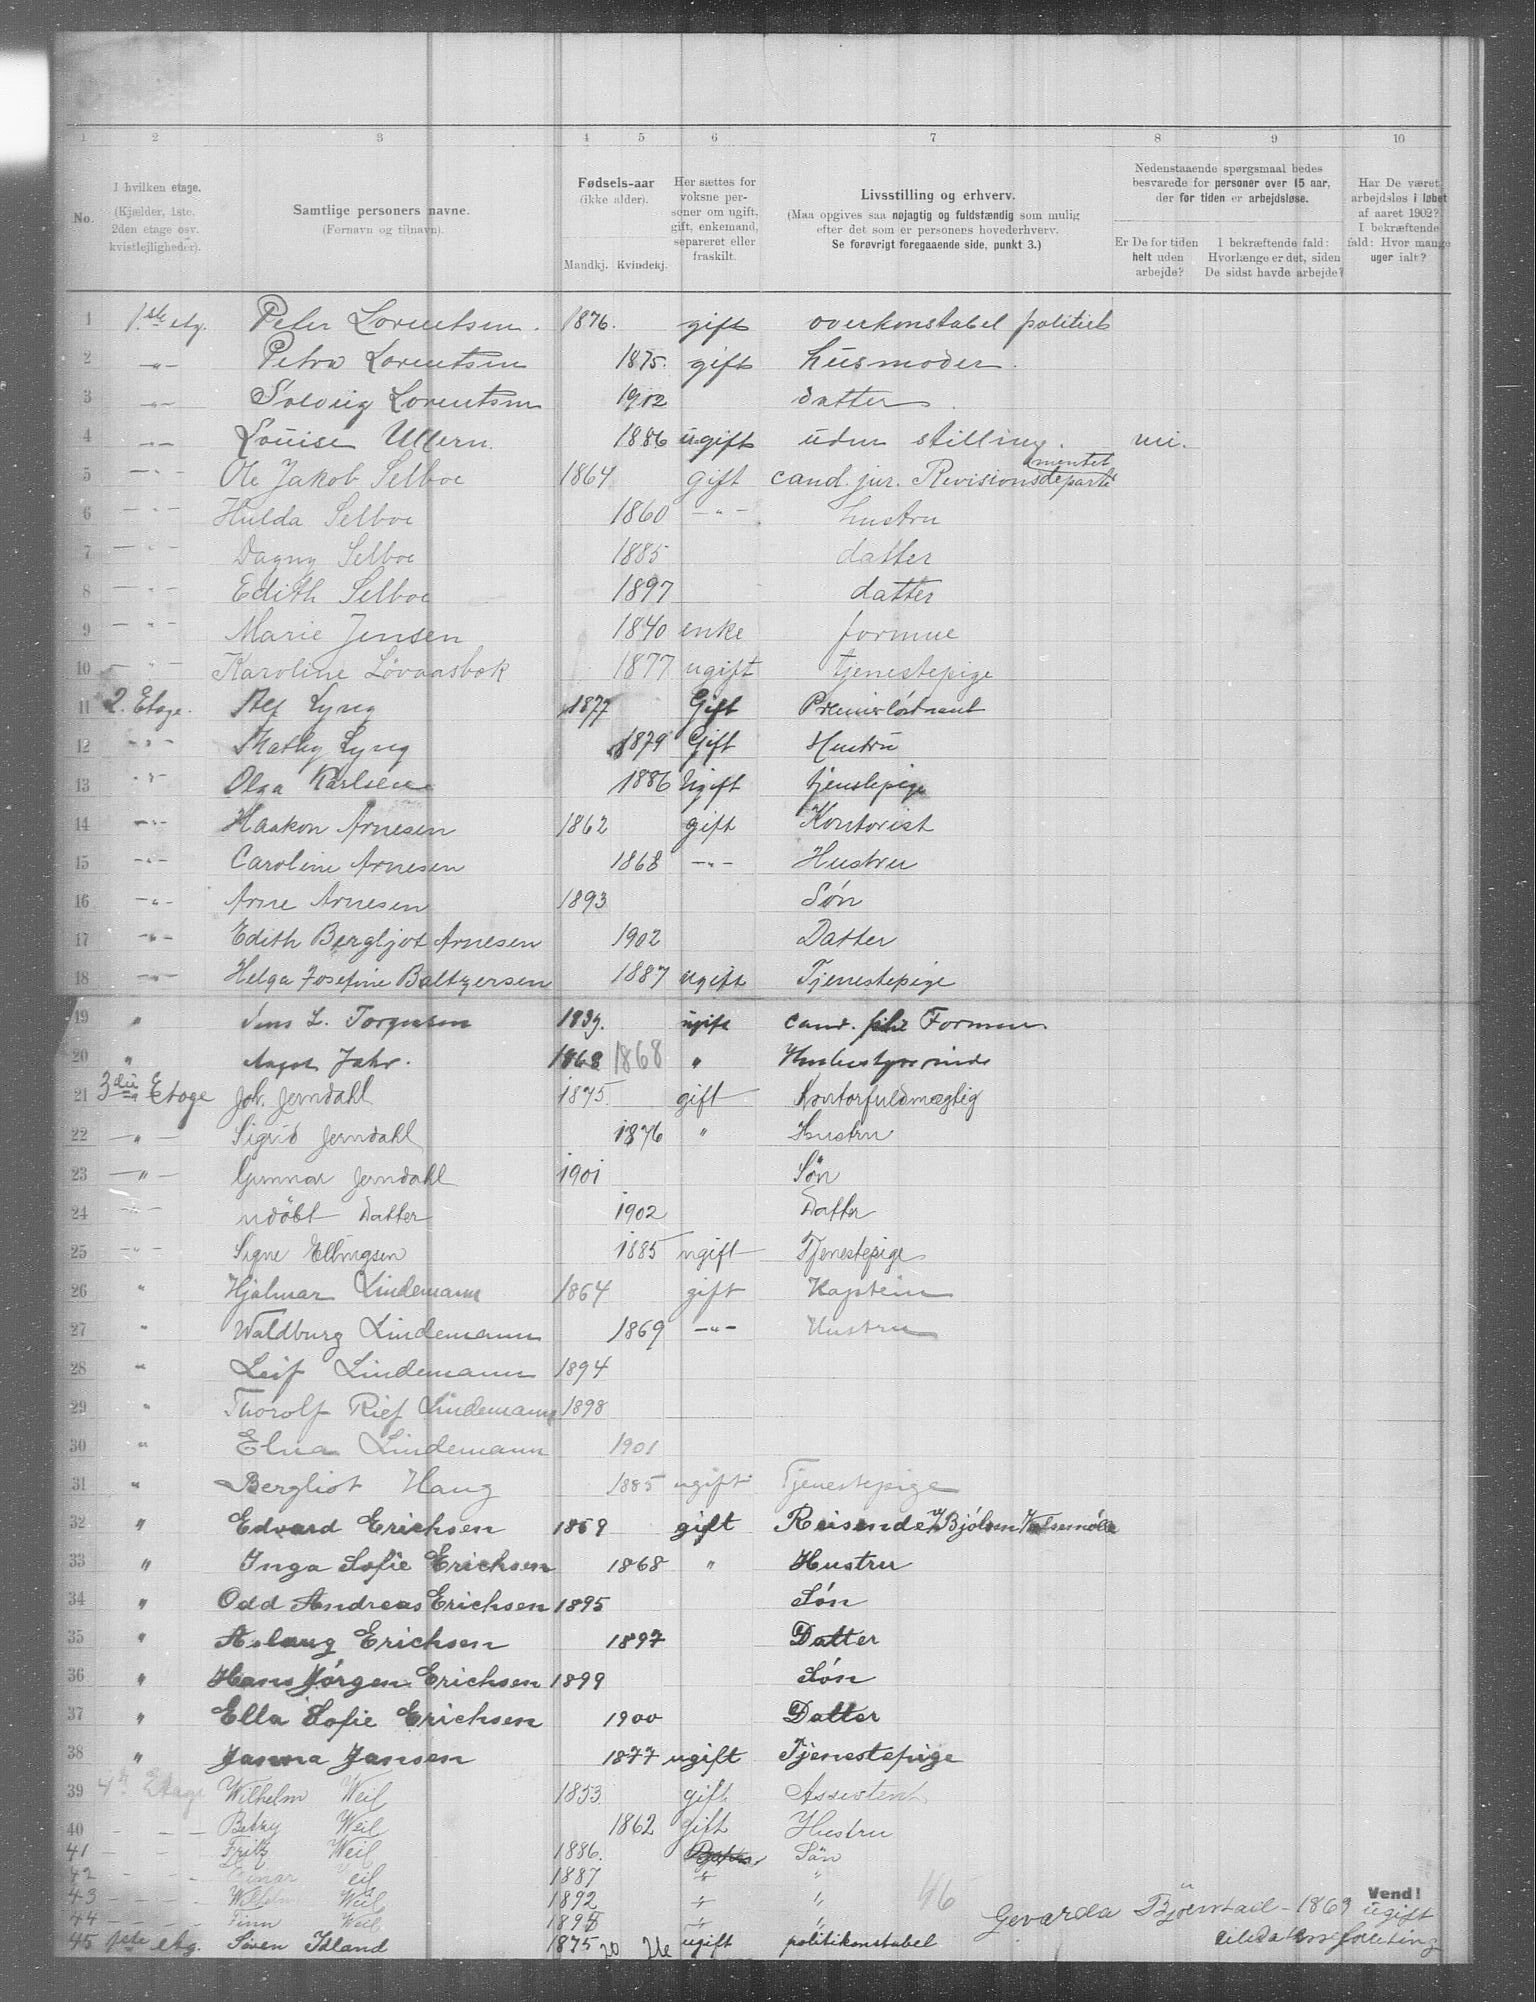 1 2 3 4 5 6 7 8 9 10
No.
I hvilken etage.
(Kjælder, 1ste.
2den etage osv.
kvistlejligheder).
Samtlige personers navne.
(Fornavn og tilnavn).
Fødsels-aar
(ikke alder).
Mandkj. Kvindekj.
Her sættes for
voksne per-
soner om ugift,
gift, enkemand,
separeret eller
fraskilt.
Livsstilling og erhverv.
(Maa opgives saa nøjagtig og fuldstændig som mulig
efter det som er personers hovederhverv.
Se forøvrigt foregaaende side, punkt 3.)
Nedenstaaende spørgsmaal bedes
besvarede for personer over 15 aar,
der for tiden er arbejdsløse.
Er De for tiden
helt uden
arbejde?
I bekræftende fald:
Hvorlænge er det, siden
De sidst havde arbejde?
Har De været
arbejdsløs i løbet
af aaret 1902?
I bekræftende
fald: Hvor mange
uger ialt?
1 1.ste etg. Peter Lorentsen. 1876. gift overkonstabel politiet
2 -„- Petra Lorentsen 1875. gift husmoder.
3 -„- Solveig Lorentsen 1902 datter.
4 -„- Louise Ullern. 1886 ugift uden stilling.
5 -„- Ole Jakob Selboe 1864 gift cand. jur. Revisionsdepartementet
6 -„- Hulda Selboe 1860 -„- hustru
7 -„- Dagny Selboe 1885 datter
8 -„- Edith Selboe 1897 datter
9 -„- Marie Jensen 1840 enke formue
10 -„- Karoline Løvaasbak 1877 ugift tjenestepige
11 2. Etage. Alf Lyng 1877 Gift Premierløitnant
12 -„- Mathy Lyng 1879 Gift Hustru
13 -„- Olga Karlsen 1886 Ugift tjenstepige
14 -„- Haakon Arnesen 1862 gift Kontorist
15 -„- Caroline Arnesen 1868 -„- Hustru
16 -„- Arne Arnesen 1893 Søn
17 -„- Edith Bergljot Arnesen 1902 Datter
18 -„- Helga Josefine Baltzersen 1887 ugift Tjenestepige
19 „ Jens L. Torgersen 1839. ugift cand. phil Formue.
20 „ Jahr. 1868 1868 „
21 3die Etage Joh. Jerndahl 1875. gift Kontorfuldmægtig
22 -„- Sigrid Jerndahl 1876 „ Hustru
23 -„- Gunnar Jerndahl 1901 Søn
24 -„- udöbt Datter 1902 Datter
25 -„- Signe Ellingsen 1885 ugift Tjenestepige
26 „ Hjalmar Lindemann 1864 gift Kaptein
27 „ Waldburg Lindemann 1869 -„- Hustru
28 „ Leif Lindemann 1894
29 „ Thorolf Rief Lindemann 1898
30 „ Elna Lindemann 1901
31 „ Bergliot Haug 1885 ugift Tjenestepige
32 „ Edvard Erichsen 1859 gift Reisende
33 „ Inga Sofie Erichsen 1868 „ Hustru
34 „ Odd Andreas Erichsen 1895 Søn
35 „ Aslaug Erichsen 1897 Datter
36 „ Hans Jørgen Erichsen 1899 Søn
37 „ Ella Sofie Erichsen 1900 Datter
38 „ Janna Jansen 1877 ugift Tjenestepige
39 4de Etage Wilhelm Weil 1853 gift Assistent
40 - - - Betzy Weil 1862 gift Hustru
41 - - - Fritz Weil 1886. Søn
42 - - - Einar Weil 1887 „ „
43 - - - Wilhelm Weil 1892 „ „
44 - - - Finn Weil „ „
45 1ste etg. Søren Idland 1875 ugift politikonstabel
20
46
Vend!
Gevarda - 1869 ugift